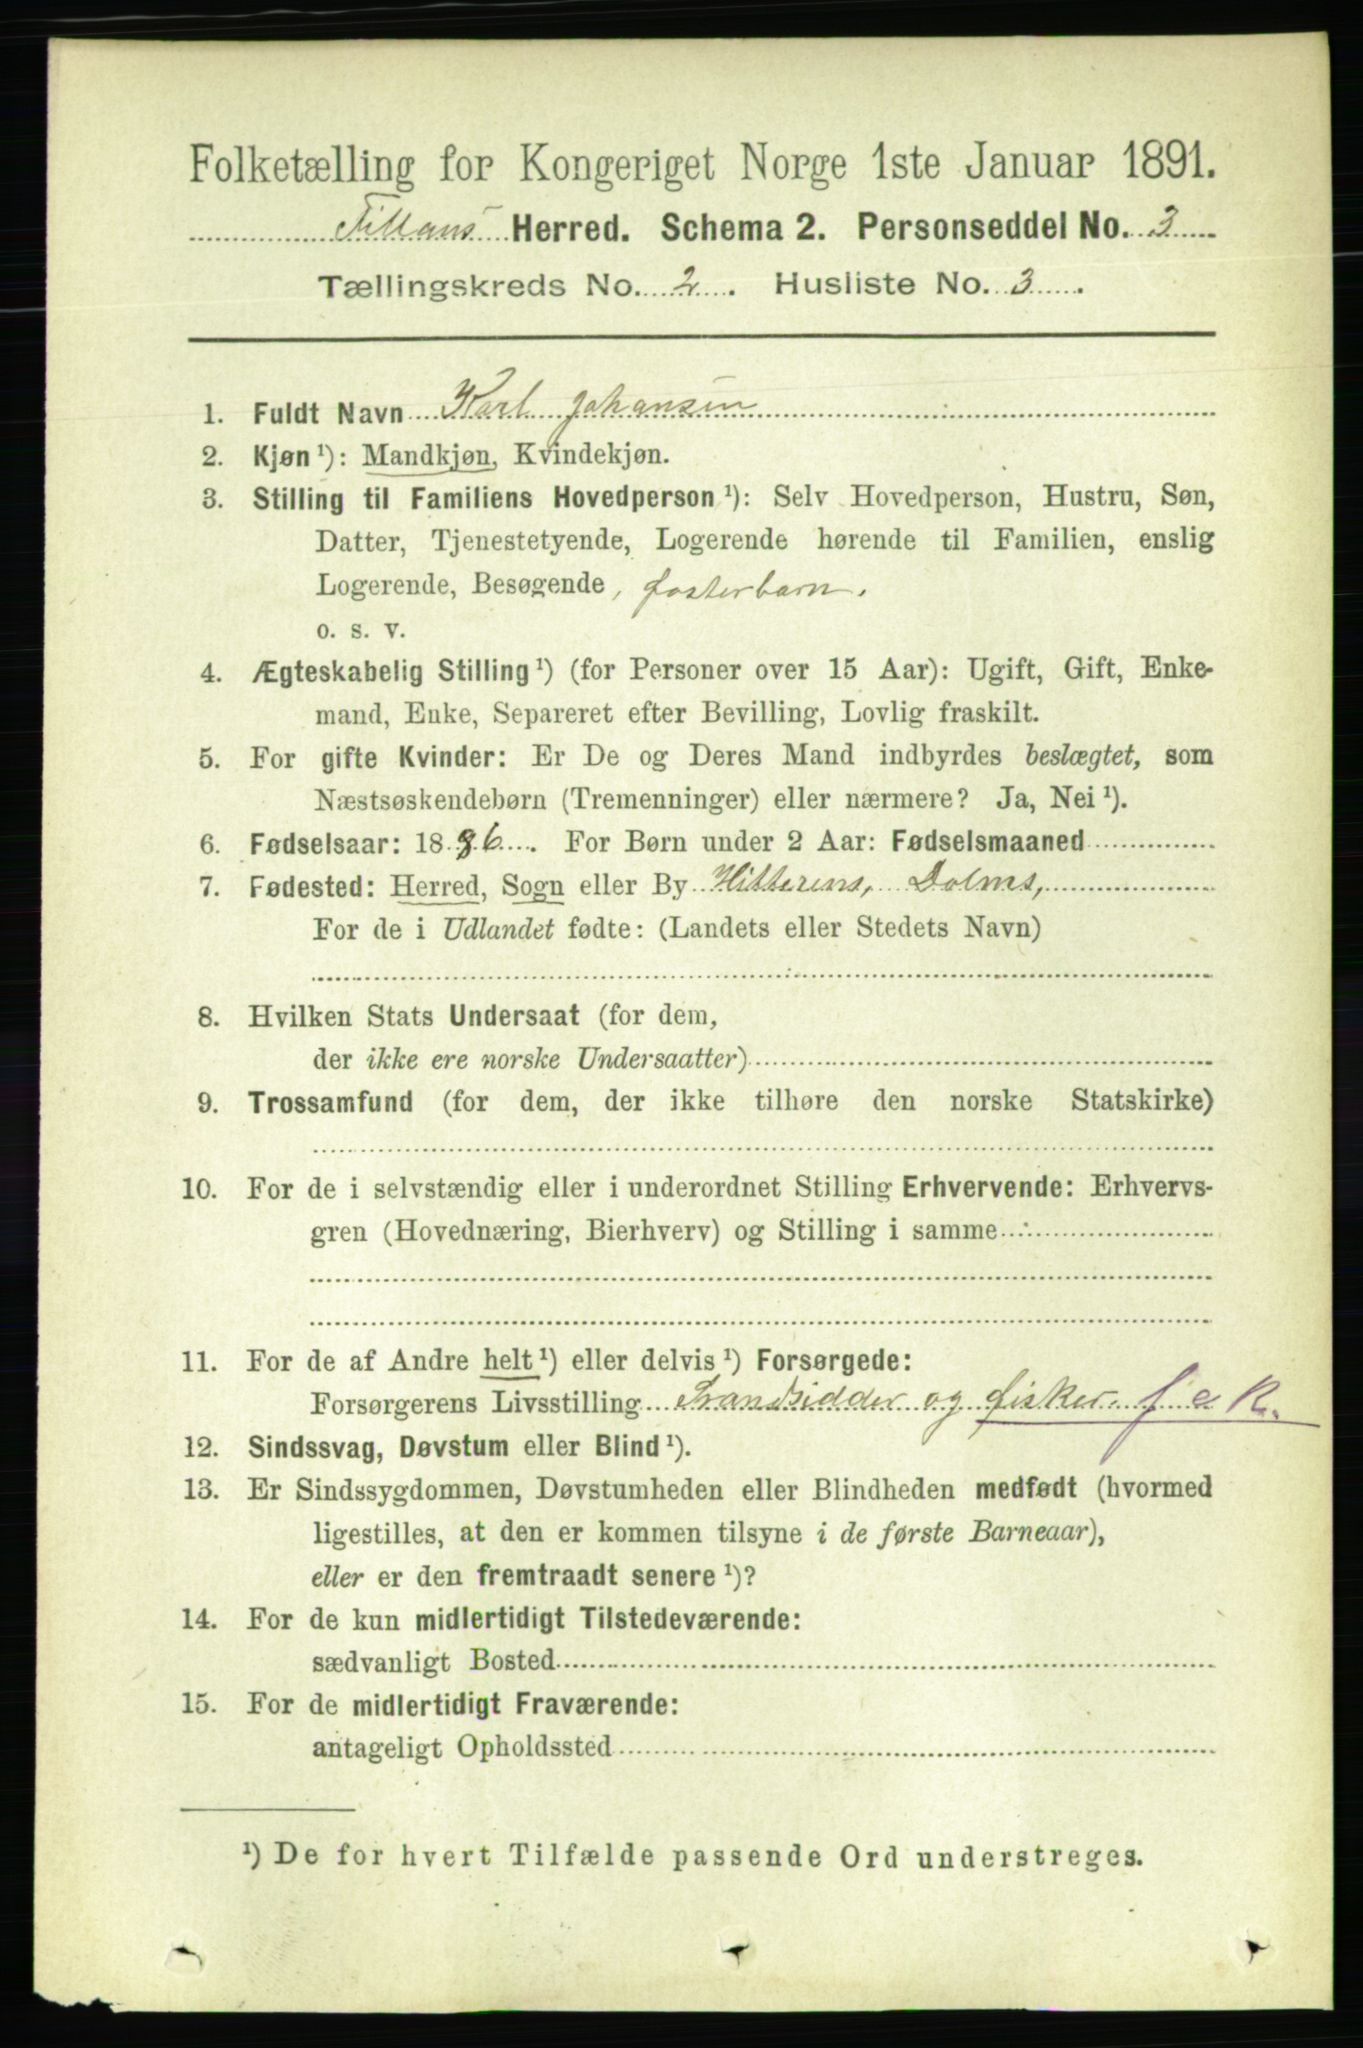 Folketælling for Kongeriget Norge 1ste Januar 1891.
Fillans Herred. Schema 2. Personseddel No. 3
Tællingskreds No. 2. Husliste No. 3.
1. Fuldt Navn Karl Johansen
2. Kjøn ¹): Mandkjøn, Kvindekjøn.
3. Stilling til Familiens Hovedperson ¹): Selv Hovedperson, Hustru, Søn,
Datter, Tjenestetyende, Logerende hørende til Familien, enslig
Logerende, Besøgende, fosterbarn.
o. s. v.
4. Ægteskabelig Stilling ¹) (for Personer over 15 Aar): Ugift, Gift, Enke-
mand, Enke, Separeret efter Bevilling, Lovlig fraskilt.
5. For gifte Kvinder: Er De og Deres Mand indbyrdes beslægtet, som
Næstsøskendebørn (Tremenninger) eller nærmere? Ja, Nei ¹).
6. Fødselsaar: 1886. For Børn under 2 Aar: Fødselsmaaned
7. Fødested: Herred, Sogn eller By Hitterens, Dolms,
For de i Udlandet fødte: (Landets eller Stedets Navn)
8. Hvilken Stats Undersaat (for dem,
der ikke ere norske Undersaatter)
9. Trossamfund (for dem, der ikke tilhøre den norske Statskirke)
10. For de i selvstændig eller i underordnet Stilling Erhvervende: Erhvervs-
gren (Hovednæring, Bierhverv) og Stilling i samme
11. For de af Andre helt ¹) eller delvis ¹) Forsørgede:
Forsørgerens Livsstilling Strandsidder og fisker. f a R.
12. Sindssvag, Døvstum eller Blind ¹).
13. Er Sindssygdommen, Døvstumheden eller Blindheden medfødt (hvormed
ligestilles, at den er kommen tilsyne i de første Barneaar),
eller er den fremtraadt senere ¹)?
14. For de kun midlertidigt Tilstedeværende:
sædvanligt Bosted
15. For de midlertidigt Fraværende:
antageligt Opholdssted
¹) De for hvert Tilfælde passende Ord understreges.